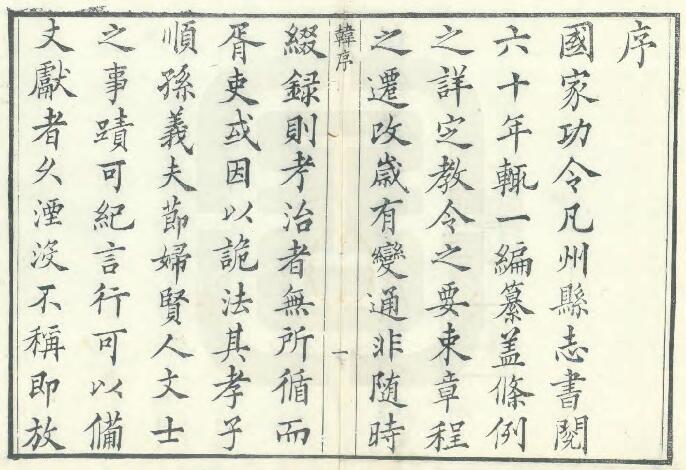 序
國家功令凡州縣志書閱
六十年輒一編纂盖條例
之詳定教令之要束章程
之遷改歲有變通非随時
韓序
一
綴録則考治者無所循而
胥吏或因以詭法其孝子
順孫義夫節婦賢人文士
之事蹟可紀言行可以備
文獻者久湮沒不稱即放